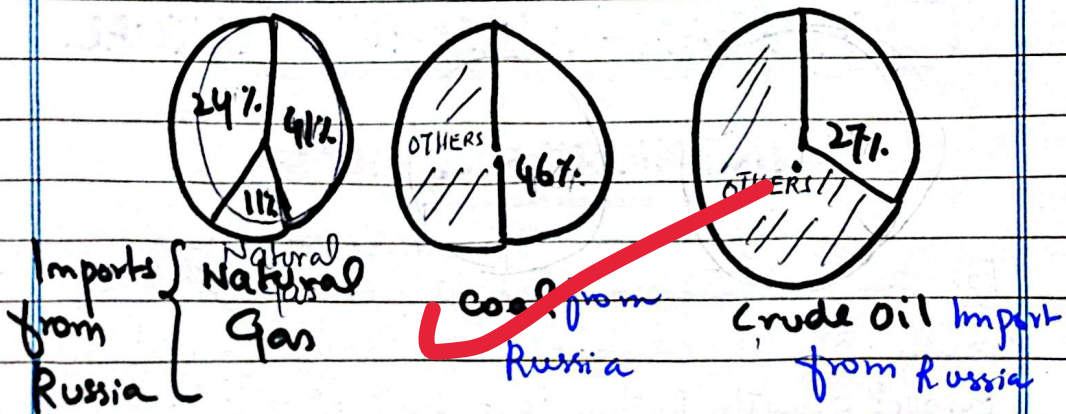 24%
41%
11%
OTHERS
46%
27%
OTHERS
Imports from Russia
Natural Gas
Natural
Gas
Coal from
Russia
Crude Oil Import
from Russia